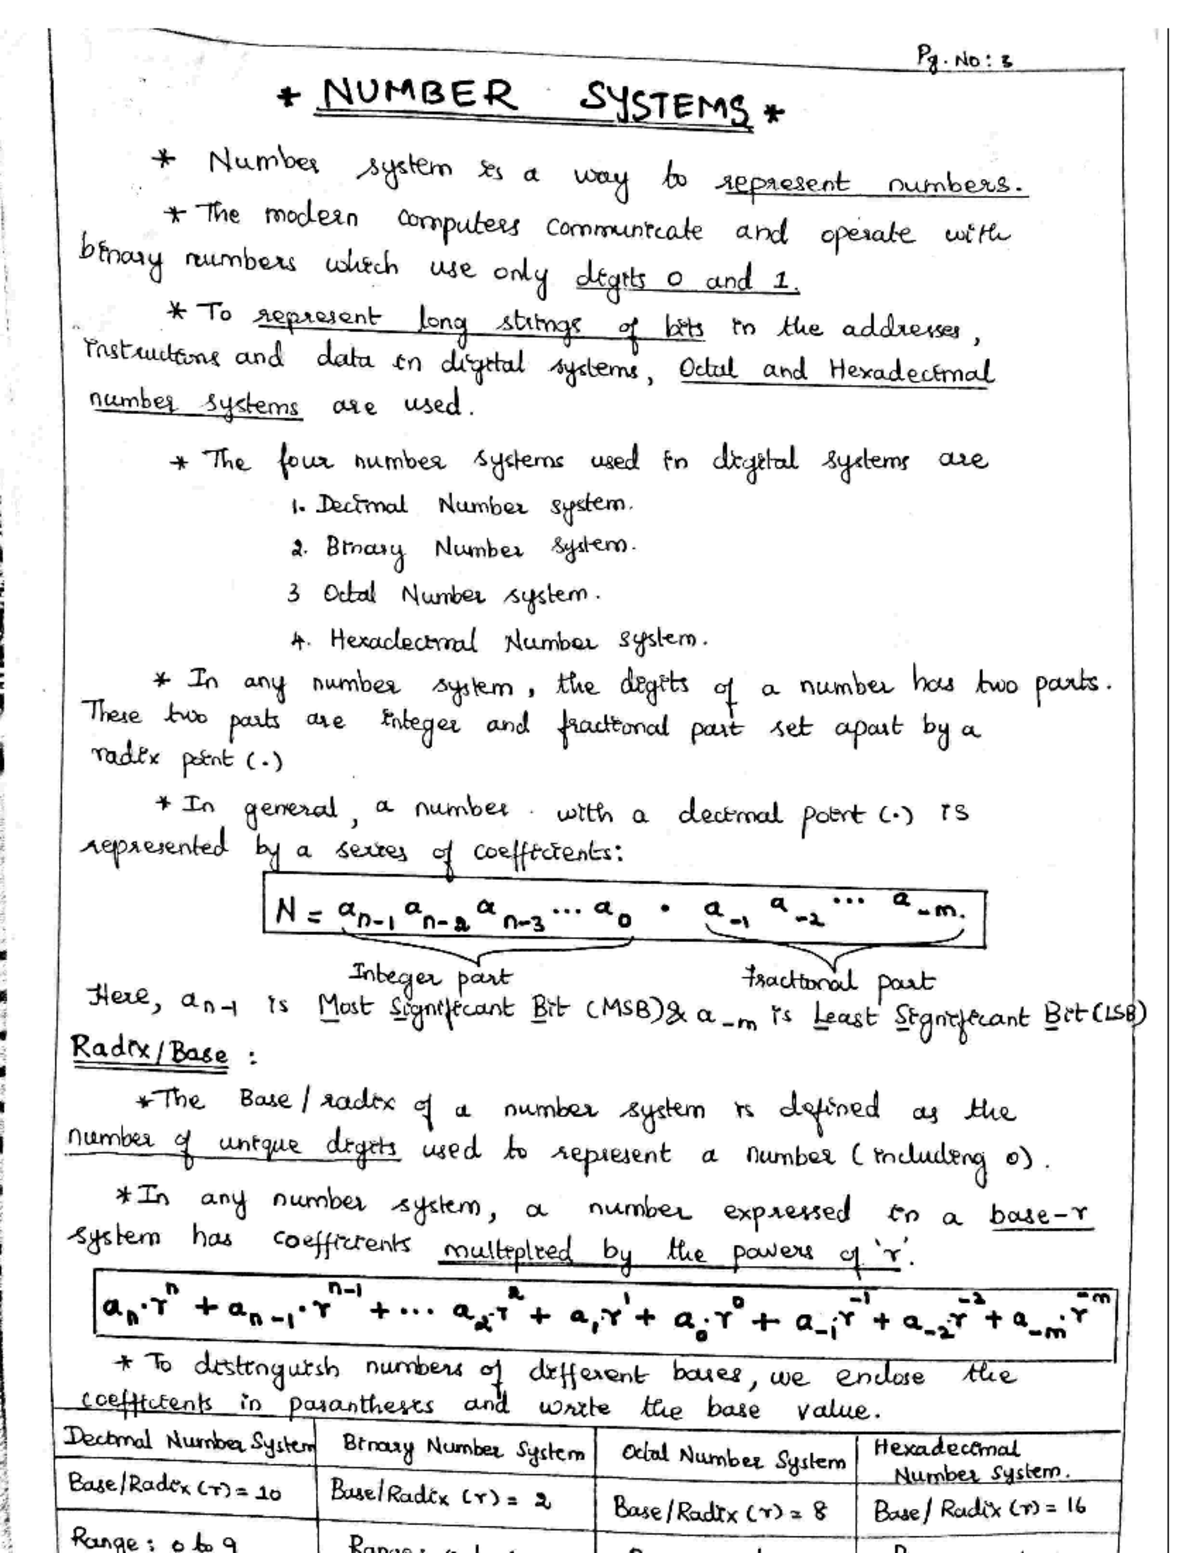 Pg. No: 3
* NUMBER SYSTEMS *
* Number system is a way to represent numbers.
* The modern computers communicate and operate with
binary numbers which use only digits 0 and 1.
* To represent long strings of bits in the addresses,
instructions and data in digital systems, Octal and Hexadecimal
number systems are used.
* The four number systems used in digital systems are
1. Decimal Number system.
2. Binary Number System.
3 Octal Number system.
4. Hexadecimal Number System.
* In any number system, the digits of a number has two parts.
These two parts are integer and fractional part set apart by a
radix point (.)
* In general, a number with a decimal point (.) is
represented by a series of coefficients:
N = a_{n-1} a_{n-2} a_{n-3} ... a_0 . a_{-1} a_{-2} ... a_{-m}.
Integer part fractional part
Here, a_{n-1} is Most Significant Bit (MSB) & a_{-m} is Least Significant Bit (LSB)
Radix/Base :
* The Base/radix of a number system is defined as the
number of unique digits used to represent a number (including 0).
* In any number system, a number expressed in a base-r
system has coefficients multiplied by the powers of 'r'.
a_n.r^n + a_{n-1}.r^{n-1} + ... a_2.r^2 + a_1.r^1 + a_0.r^0 + a_{-1}.r^{-1} + a_{-2}.r^{-2} + a_{-m}.r^{-m}
* To distinguish numbers of different bases, we enclose the
coefficients in parantheses and write the base value.
Decimal Number System Binary Number System Octal Number System Hexadecimal Number System.
Base/Radix (r) = 10 Base/Radix (r) = 2 Base/Radix (r) = 8 Base/Radix (r) = 16
Range: 0 to 9 Range: